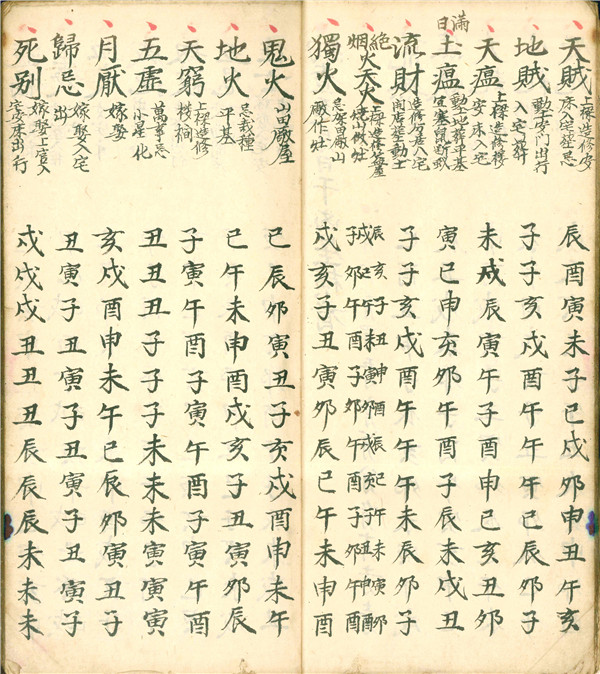 天賊 上樑造修安床入宅葬忌 辰酉寅未子巳戌卯申丑午亥
地賊 動土安門出行入宅葬 子子亥戌酉午午午巳辰卯子
天瘟 上樑造修移安床入宅 未戌辰寅午子酉申巳亥丑卯
滿日
土瘟 動土葬平基塞鼠断蚁 寅巳申亥卯午酉子辰未戌丑
流財 造修居入宅開店葬動土 子子亥戌酉午午午未辰卯子
絕烟火 天火 上樑造修 子卯午酉子卯午酉子卯午酉
獨火 忌架田廠山廠作灶 戌亥子丑寅卯辰巳午未申酉
鬼火 山田廠屋 巳辰卯寅丑子亥戌酉申未午
地火 忌栽種平基 巳午未申酉戌亥子丑寅卯辰
天窮 上樑造修 子寅午酉子寅午酉子寅午酉
五虛 萬事忌 丑丑丑子子子未未未寅寅寅
月厭 嫁娶 亥戌酉申未午巳辰卯寅丑子
歸忌 嫁娶入宅出 丑寅子丑寅子丑寅子丑寅子
死别 嫁娶上官入宅安床出行 戌戌戌丑丑丑辰辰辰未未未